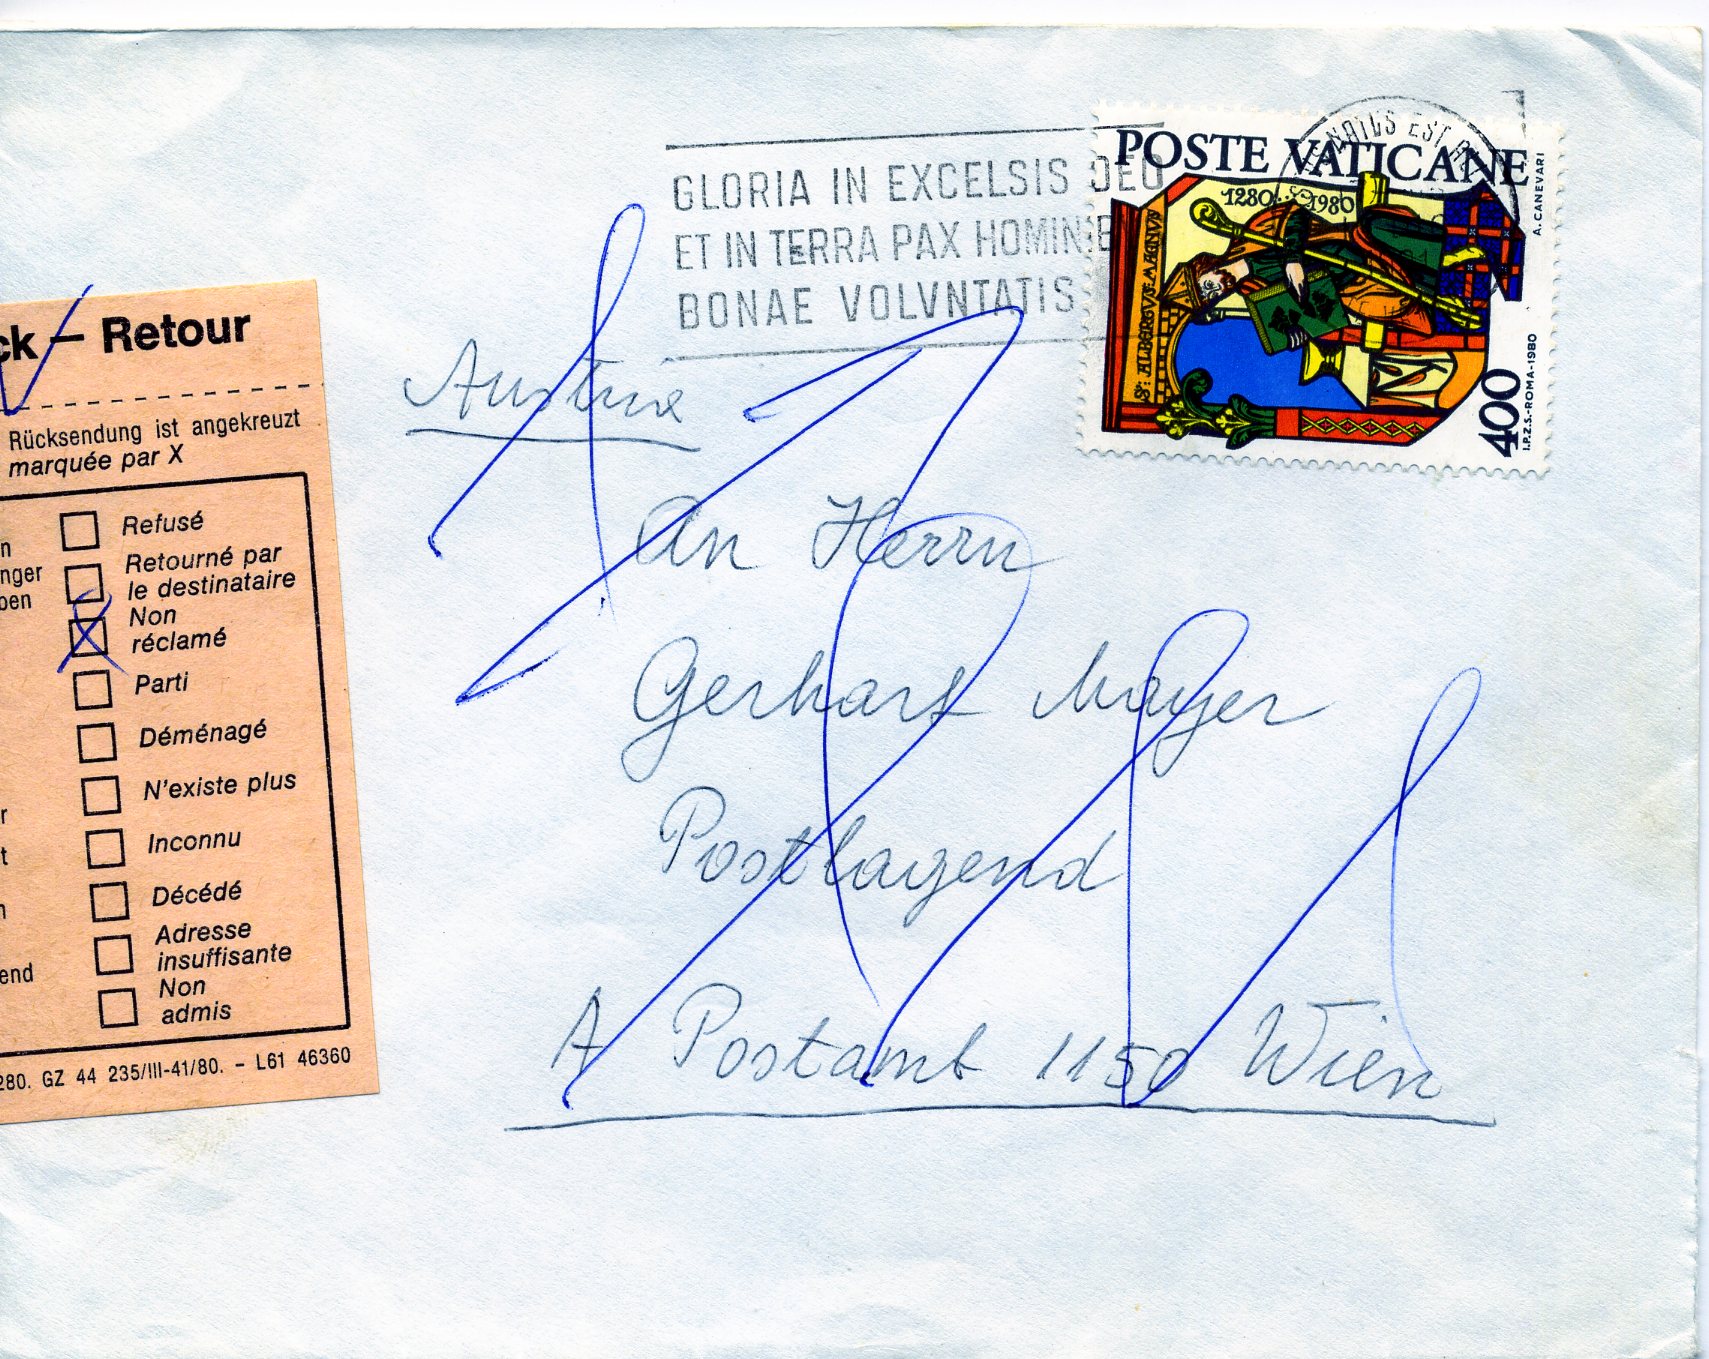 GLORIA IN EXCELSIS DEO
ET IN TERRA PAX HOMINIB
BONAE VOLVNTATIS
NATUS EST
POSTE VATICANE
1280 1980
Sᵗ: ALBERTVS: MAGNVS
A. CANEVARI
400
I.P.Z.S.-ROMA-1980
Austria
An Herrn
Gerhart Mayer
Postlagend
A Postamt 1150 Wien
ck – Retour
Rücksendung ist angekreuzt
marquée par X
n
Refusé
nger
ben
Retourné par
le destinataire
Non
réclamé
Parti
Déménagé
N'existe plus
r
t
Inconnu
n
Décédé
Adresse
insuffisante
end
Non
admis
280. GZ 44 235/III-41/80. – L61 46360